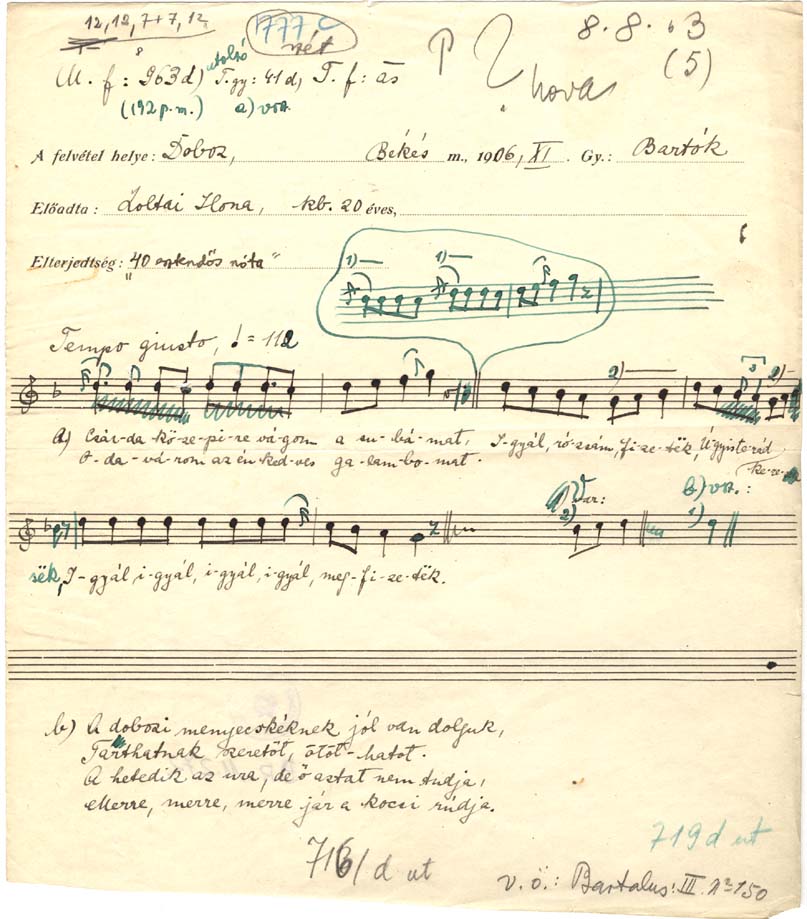 12, 12, 7+7, 12
1777 c
8. 8. 63
(5)
M. f: 963 d) utolsó T. gy: 41 d, T. f: ás
(192 p. m.) a) vsz.
hova
A felvétel helye: Doboz, Békés m., 1906, XI. Gy.: Bartók
Előadta: Zoltai Ilona, kb. 20 éves,
Elterjedtség: "40 esztendős nóta"
1) 1)
Tempo giusto, = 112
2) 3
a) Csár-da kö-ze-pi-re vá-gom a su-bá-mat, I-gyál, ró-zsám, fi-ze-tek, Úgyis te-rád
O-da-vá-rom az én ked-ves ga-lam-bo-mat. ke-re-
Var: b) vsz.:
2) 1)
sëk, I-gyál, i-gyál, i-gyál, i-gyál, meg-fi-ze-tëk.
b) A dobozi menyecskéknek jól van dolguk,
Tarthatnak szeretőt, ötöt-hatot.
A hetedik az ura, de ő aztat nem tudja,
Merre, merre, merre jár a kocsi rúdja.
719 d ut
716/d ut
v. ö.: Bartalus: III. No 150